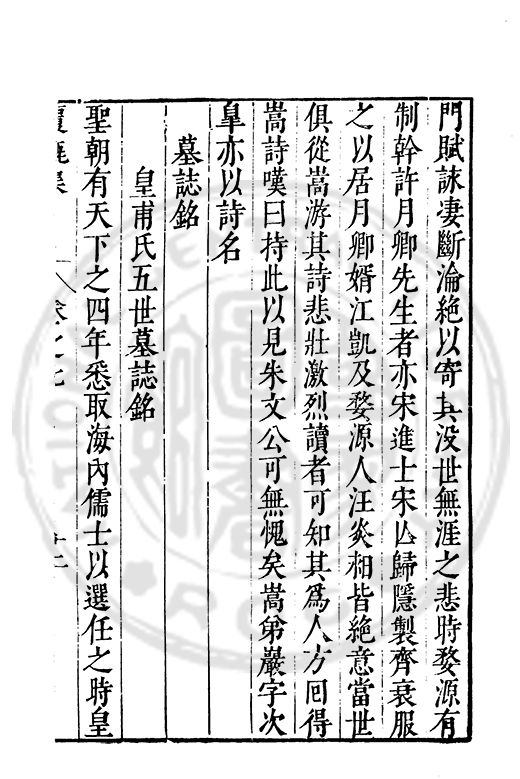 門賦訴凄斷淪絶以寄其没世無涯之悲時婺源有
制幹許月卿先生者亦宋進士宋亾歸隱製齊衰服
之以居月卿婿江凱及婺源人汪炎昶皆絶意當世
俱從嵩游其詩悲壯激烈讀者可知其為人方囘得
嵩詩嘆曰持此以見朱文公可無愧矣嵩弟巖字次
臯亦以詩名
墓誌銘
皇甫氏五世墓誌銘
聖朝有天下之四年悉取海內儒士以選任之時皇
卷之七